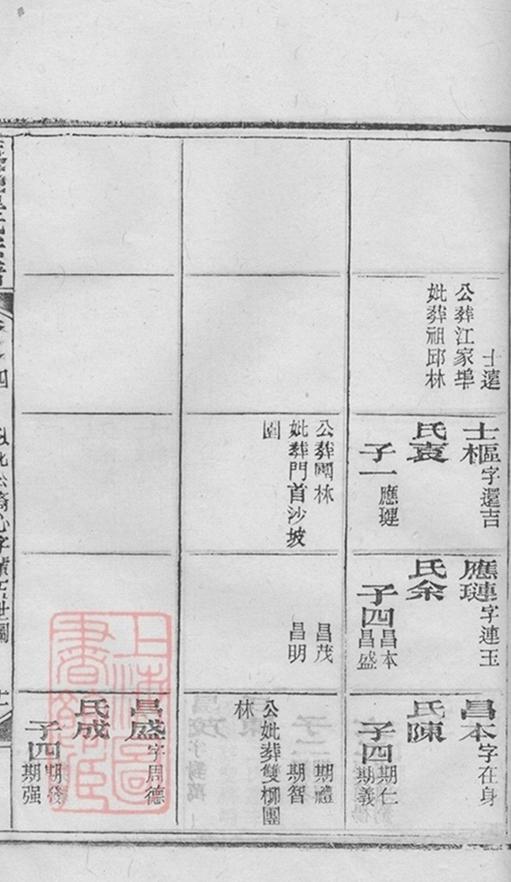 士遠
公葬江家埠
妣葬祖邱林
士樞字還吉
氏袁
子一應璉
應璉字連玉
氏余
子四昌本
昌盛
昌本字在身
氏陳
子四期仁
期義
公葬關林
妣葬門首沙坡
園
昌茂
昌明
期禮
期智
公妣葬雙柳園
林
昌盛字周德
氏成
子四期發
期强